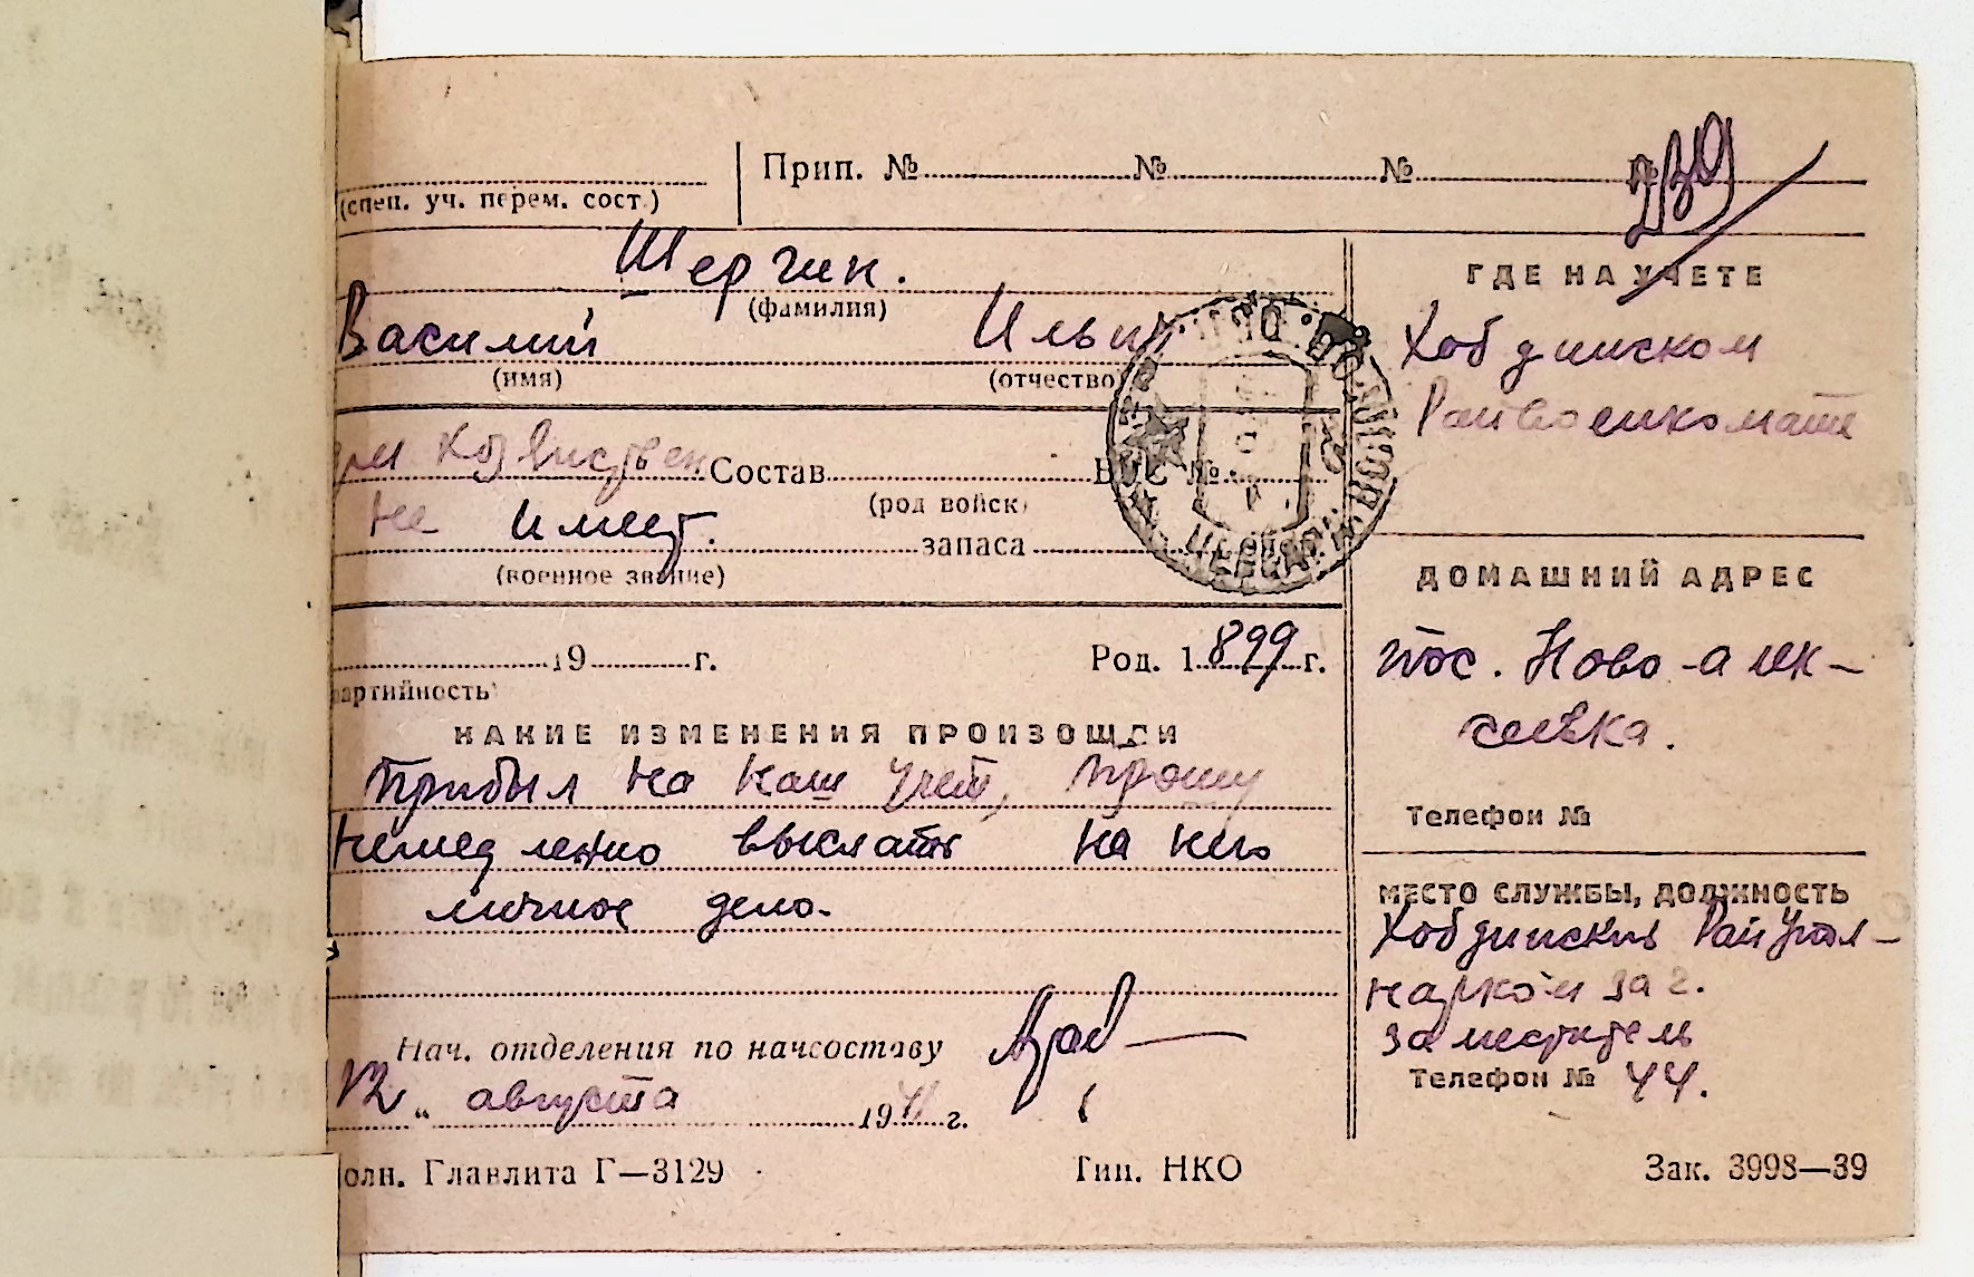 Прип. № № № №
239
(спец. уч. перем. сост.)
Шергин.
(фамилия)
Василий Ильич
(имя) (отчество)
Состав ВУС №
(род войск)
не имеет. запаса
(военное звание)
19 г. Род. 1899 г.
артийность
КАКИЕ ИЗМЕНЕНИЯ ПРОИЗОШЛИ
Прибыл на наш учет, прошу
немедленно выслать на него
личное дело.
Нач. отделения по начсоставу
12 „ августа 1941 г.
ГДЕ НА УЧЕТЕ
Хобдинском
Райвоенкомате
ДОМАШНИЙ АДРЕС
пос. Ново-алек-
сеевка.
Телефон №
МЕСТО СЛУЖБЫ, ДОЛЖНОСТЬ
Хобдинский Райупол-
наркомзаг.
заместитель
Телефон № 44.
олн. Главлита Г—3129 Тип. НКО Зак. 3998—39